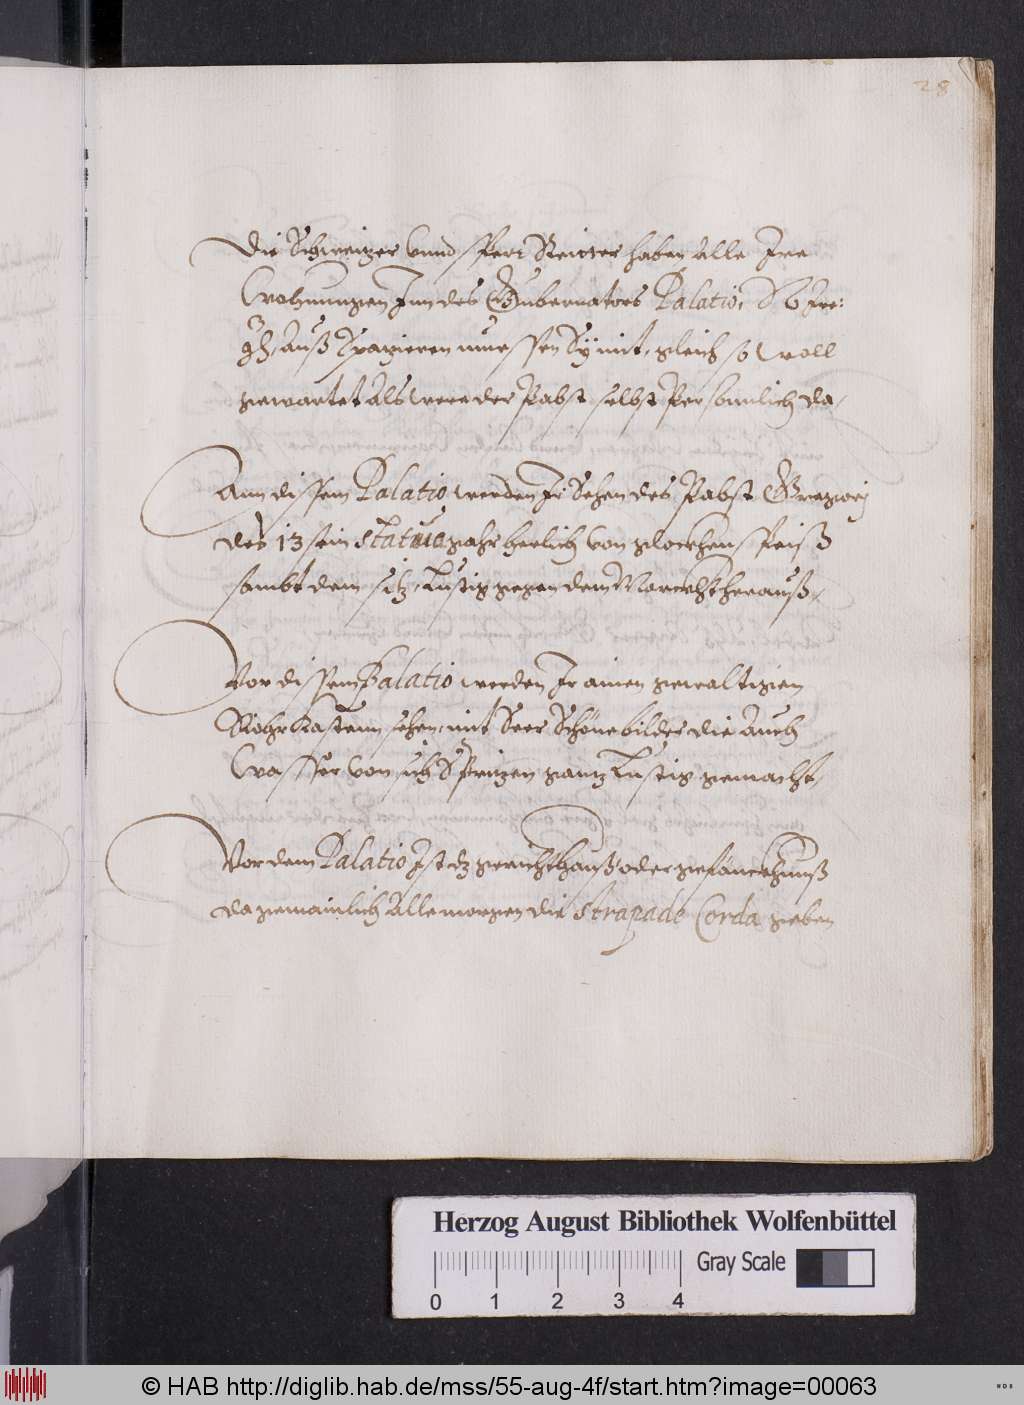 28
Die Schweizer Vnnd Pferdt Reitter haben Alle Ire
Wohnungen Inn des Gubernators Palatio, So Ire:
Auß Spazieren muessen Sy mit, gleich so Woll
gewartet Als were der Pabst selbst Persönnlich da,
Ann dissem Palatio werden Ir Sehen des Pabst Gregorÿ
des 13 sein statua gahr herlich von glockhen speiß
sambt dem siz, Lustig gegen dem Marckht herauß,
Vor dissem Palatio werden Ir ainen gewaltigen
Röhr Kastenn sehen, mit Seer Schöne bilder die Auch
Wasser Von sich Sprizen gantz Lustig gemacht,
Vor dem Palatio Ist dz gericht hauß oder gefänckhnuß
da gemainlich Alle morgen die strapado Corda geben
Herzog August Bibliothek Wolfenbüttel
Gray Scale
0 1 2 3 4
© HAB http://diglib.hab.de/mss/55-aug-4f/start.htm?image=00063